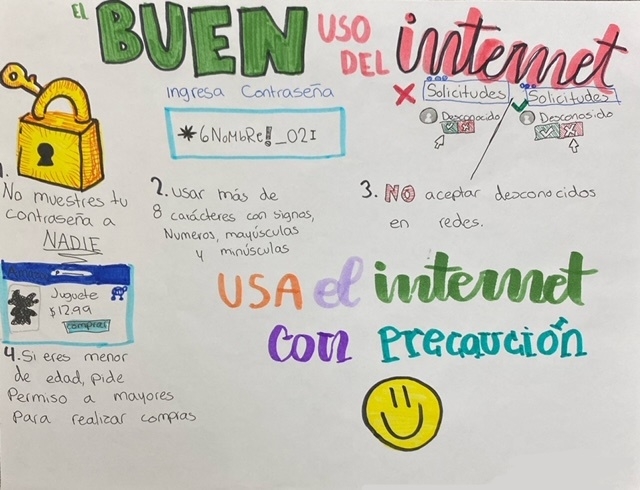 EL BUEN USO DEL internet
Ingresa Contraseña
*6NoMbRe!_021
Solicitudes
Desconocido
Solicitudes
Desconosido
1.
No muestres tu
contraseña a
NADIE
2. Usar más de
8 carácteres con signos,
Numeros, mayúsculas
y minúsculas
3. NO aceptar desconocidos
en redes.
Juguete
$12.99
compras
4. Si eres menor
de edad, pide
Permiso a mayores
Para realizar compras
USA el internet
con Precaución